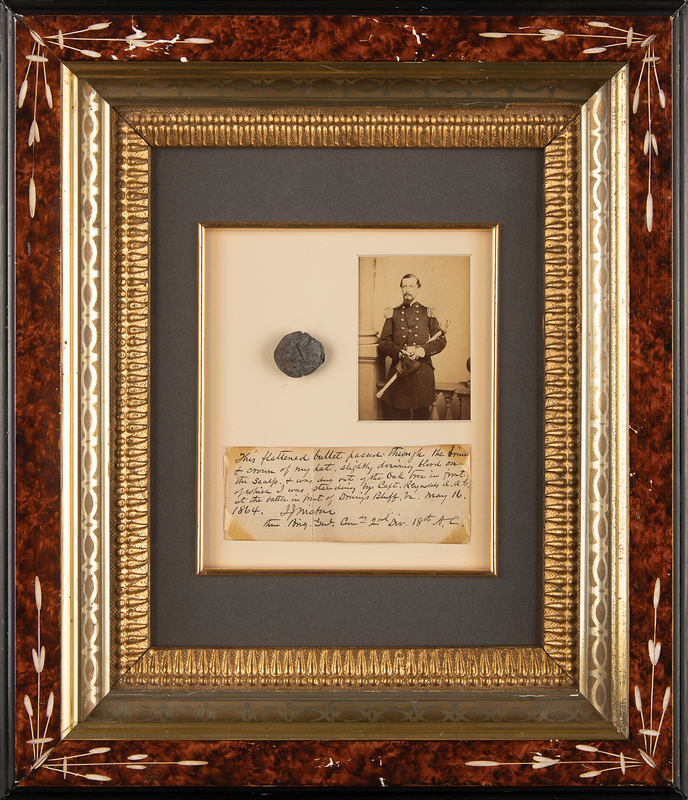 This flattened bullet passed through the brim
& crown of my hat, slightly drawing blood on
the Scalp, & was dug out of the Oak tree in front
of which I was standing by Capt. Reynolds A.A.G.
at the battle in front of Drurys Bluff, Va. May 16.
1864.
then Brig. Genl. Com'dg 2nd Div. 18th A. C.